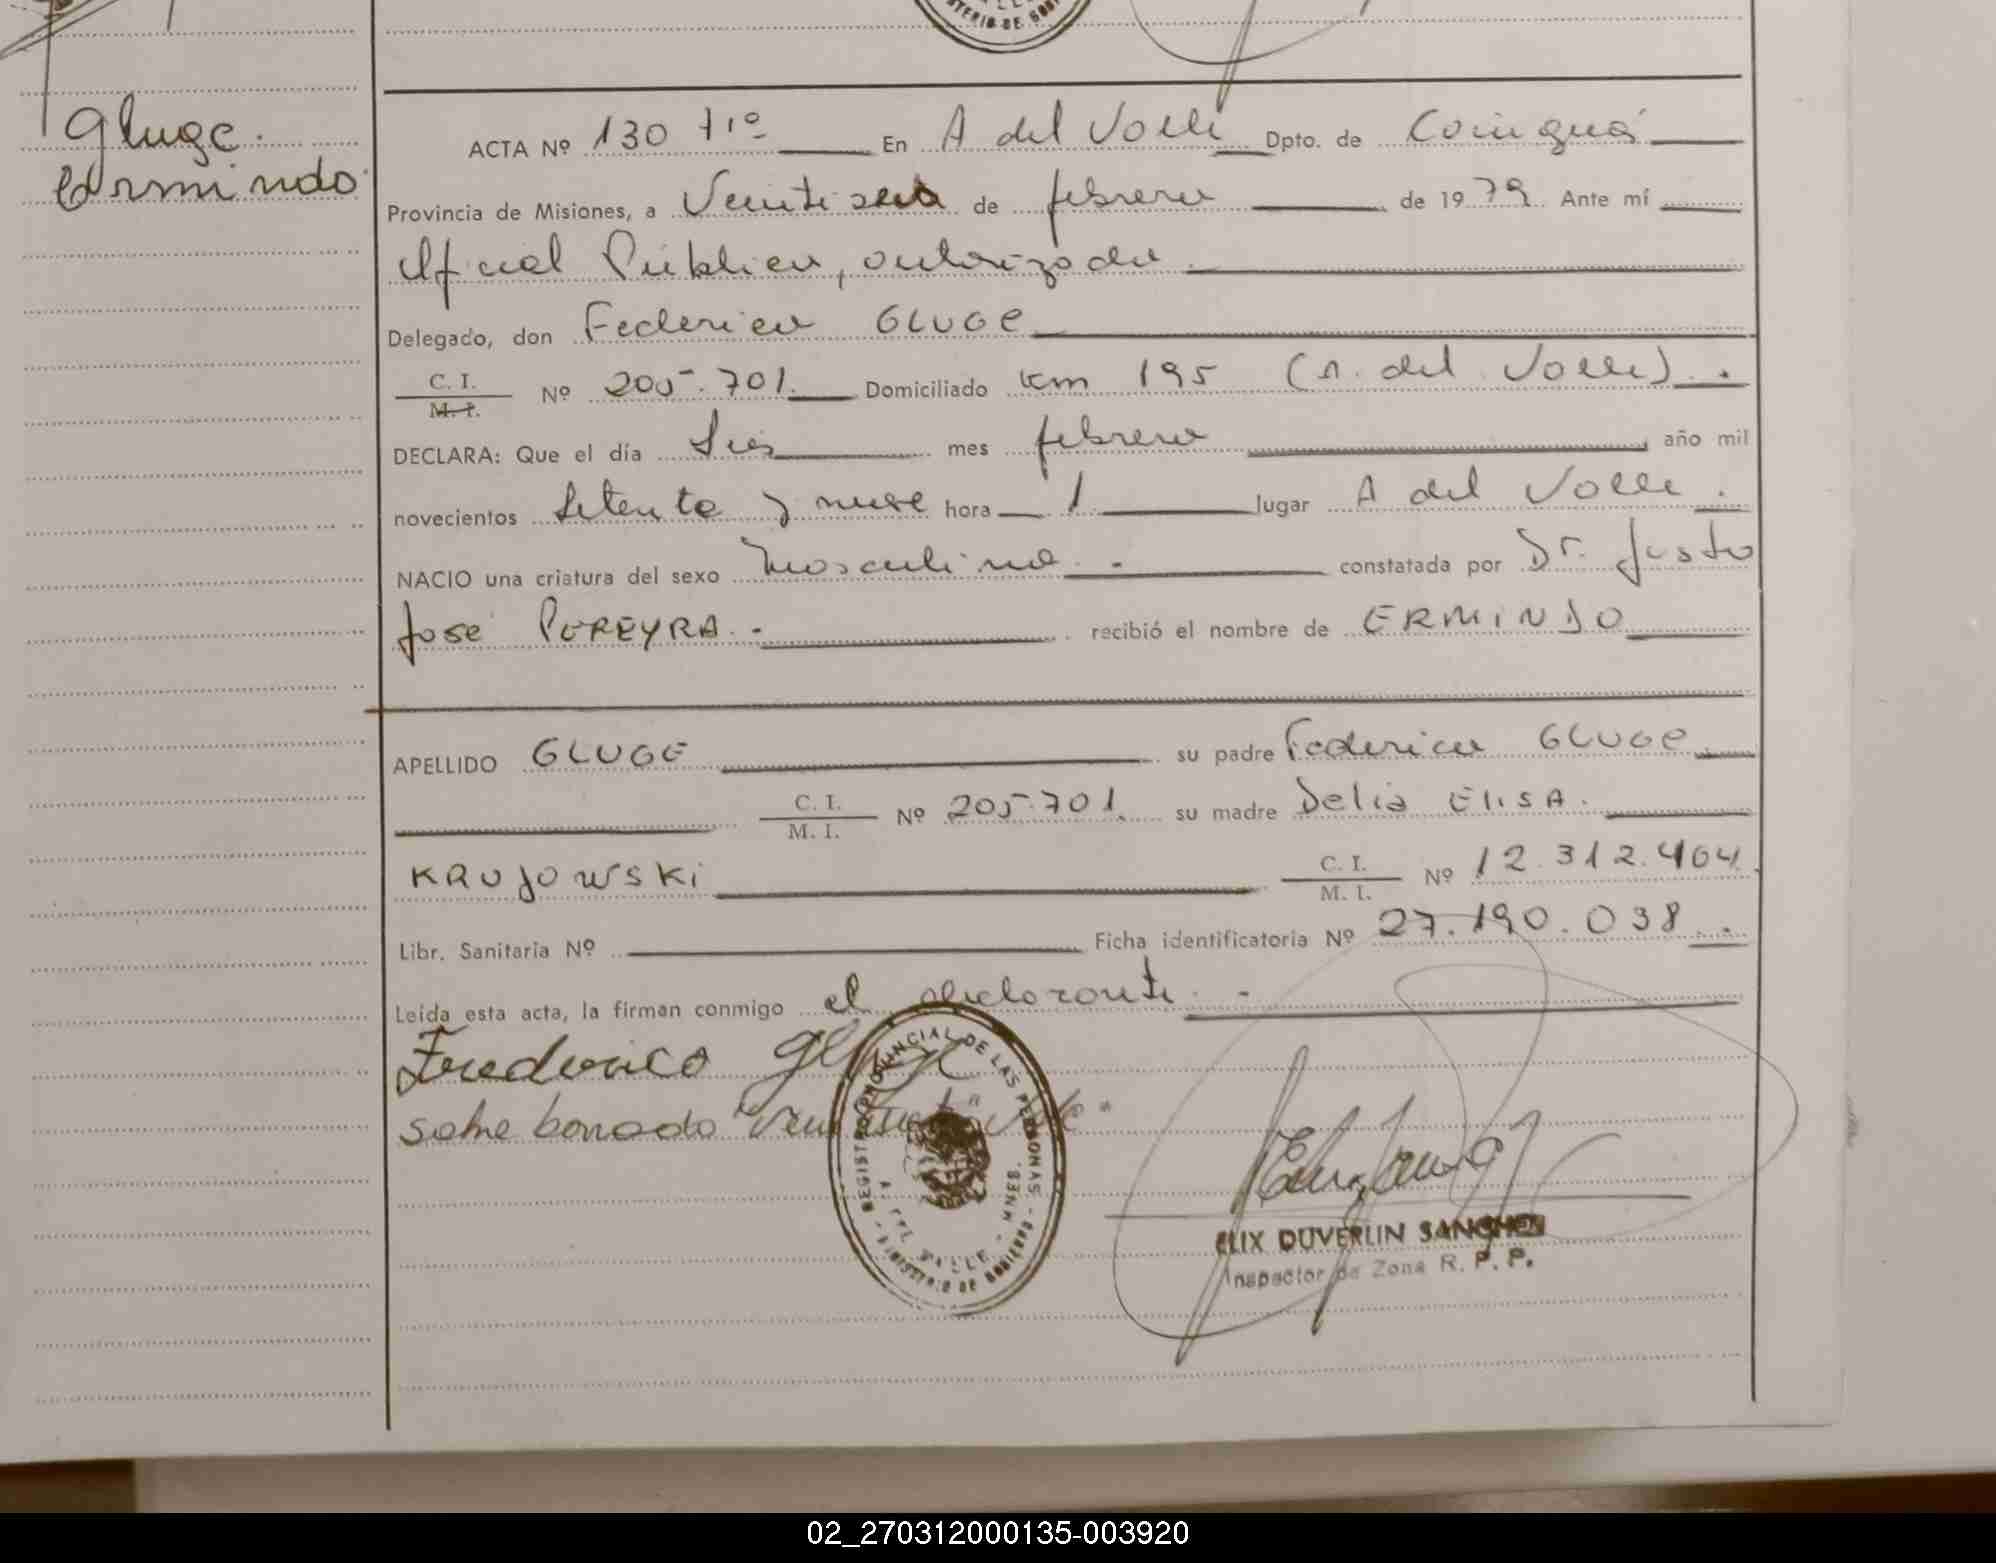 Gluge.
Ermindo.
ACTA Nº 130 Tiº En A del Valle Dpto. de Cainguá
Provincia de Misiones, a Veintiseis de febrero de 1979. Ante mí
Oficial Público, autorizado
Delegado, don Federico GLUGE
C. I.
M. I.
Nº 205.701. Domiciliado Km 195 (A. del Valle).
DECLARA: Que el día Seis mes febrero año mil
novecientos Setenta y nueve hora 1 lugar A del Valle.
NACIO una criatura del sexo masculino.- constatada por Dr. Justo
Jose PEREYRA.- recibió el nombre de ERMINDO
APELLIDO GLUGE su padre Federico GLUGE
C. I.
M. I.
Nº 205.701. su madre Delia ELISA.
KRUJOWSKi C. I.
M. I.
Nº 12.312.464.
Libr. Sanitaria Nº Ficha identificatoria Nº 27.190.038.-
Leída esta acta, la firman conmigo el declarante.-
Frederico Gluge
sobre borrado "Veintiseis"
REGISTRO PROVINCIAL DE LAS PERSONAS - MINISTERIO DE GOBIERNO -
A. DEL VALLE - MNES.
ELIX DUVERLIN SANCHEZ
Inspector de Zona R. P. P.
02_270312000135-003920